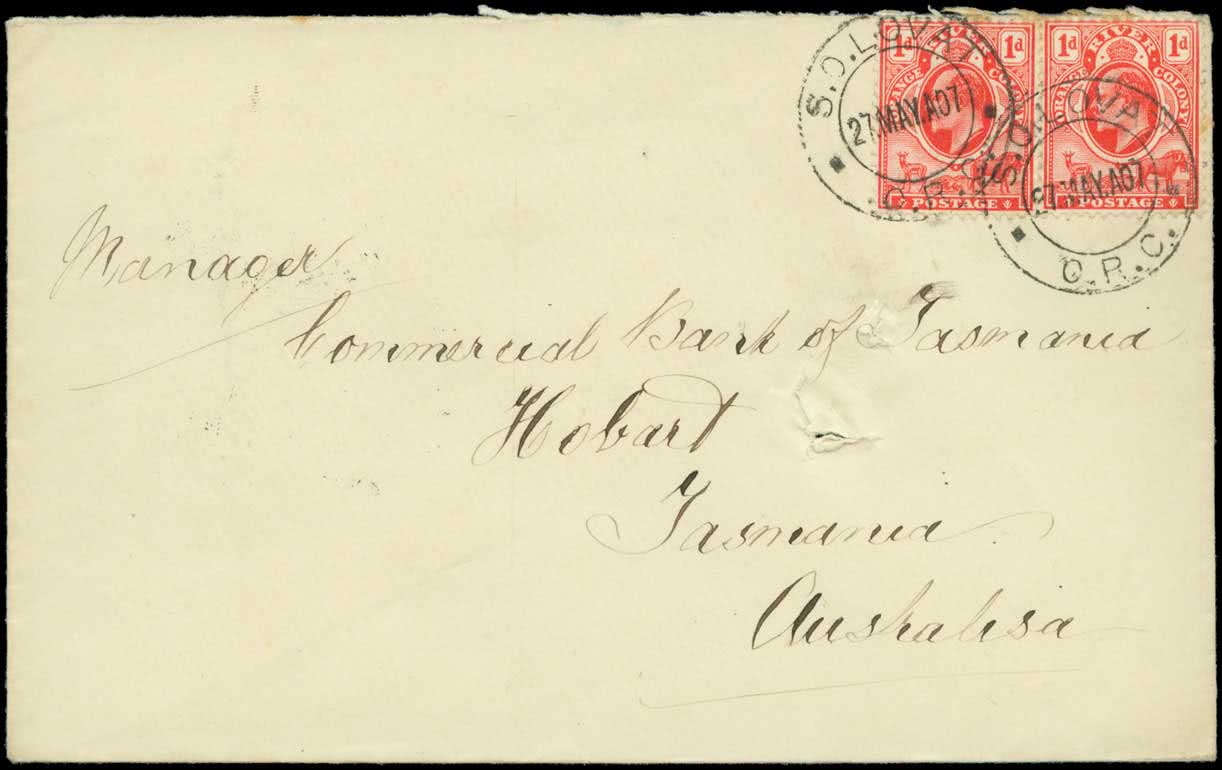 S.O. LOVAT
27 MAY.A07
O.R.C.
1d RIVER 1d
ORANGE COLONY
POSTAGE
S.O. LOVAT
27 MAY.A07
O.R.C.
1d RIVER 1d
ORANGE COLONY
POSTAGE
Manager
Commercial Bank of Tasmania
Hobart
Tasmania
Australisa